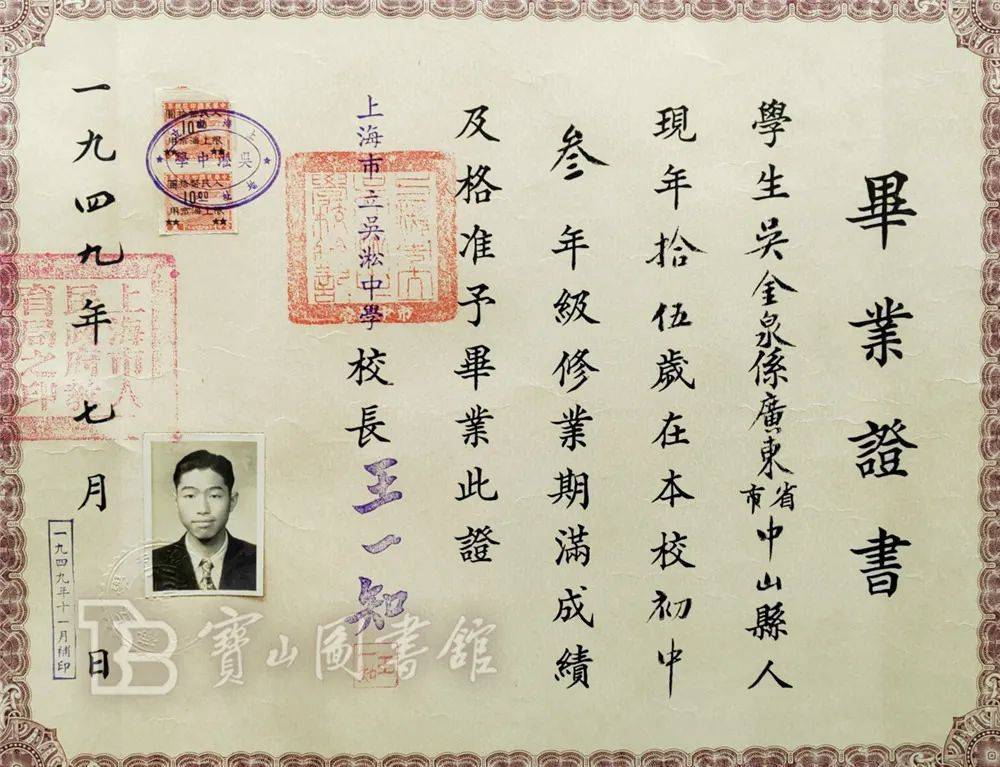 畢業證書
學生吳金泉係廣東省市中山縣人
現年拾伍歲在本校初中
叁年級修業期滿成績
及格准予畢業此證
上海市立吳淞中學校長王一知
王一知
一九四九年七月 日
上海市人民政府教育局之印
吳淞中學
10.00
10.00
一九四九年十一月補印
寶山圖書館